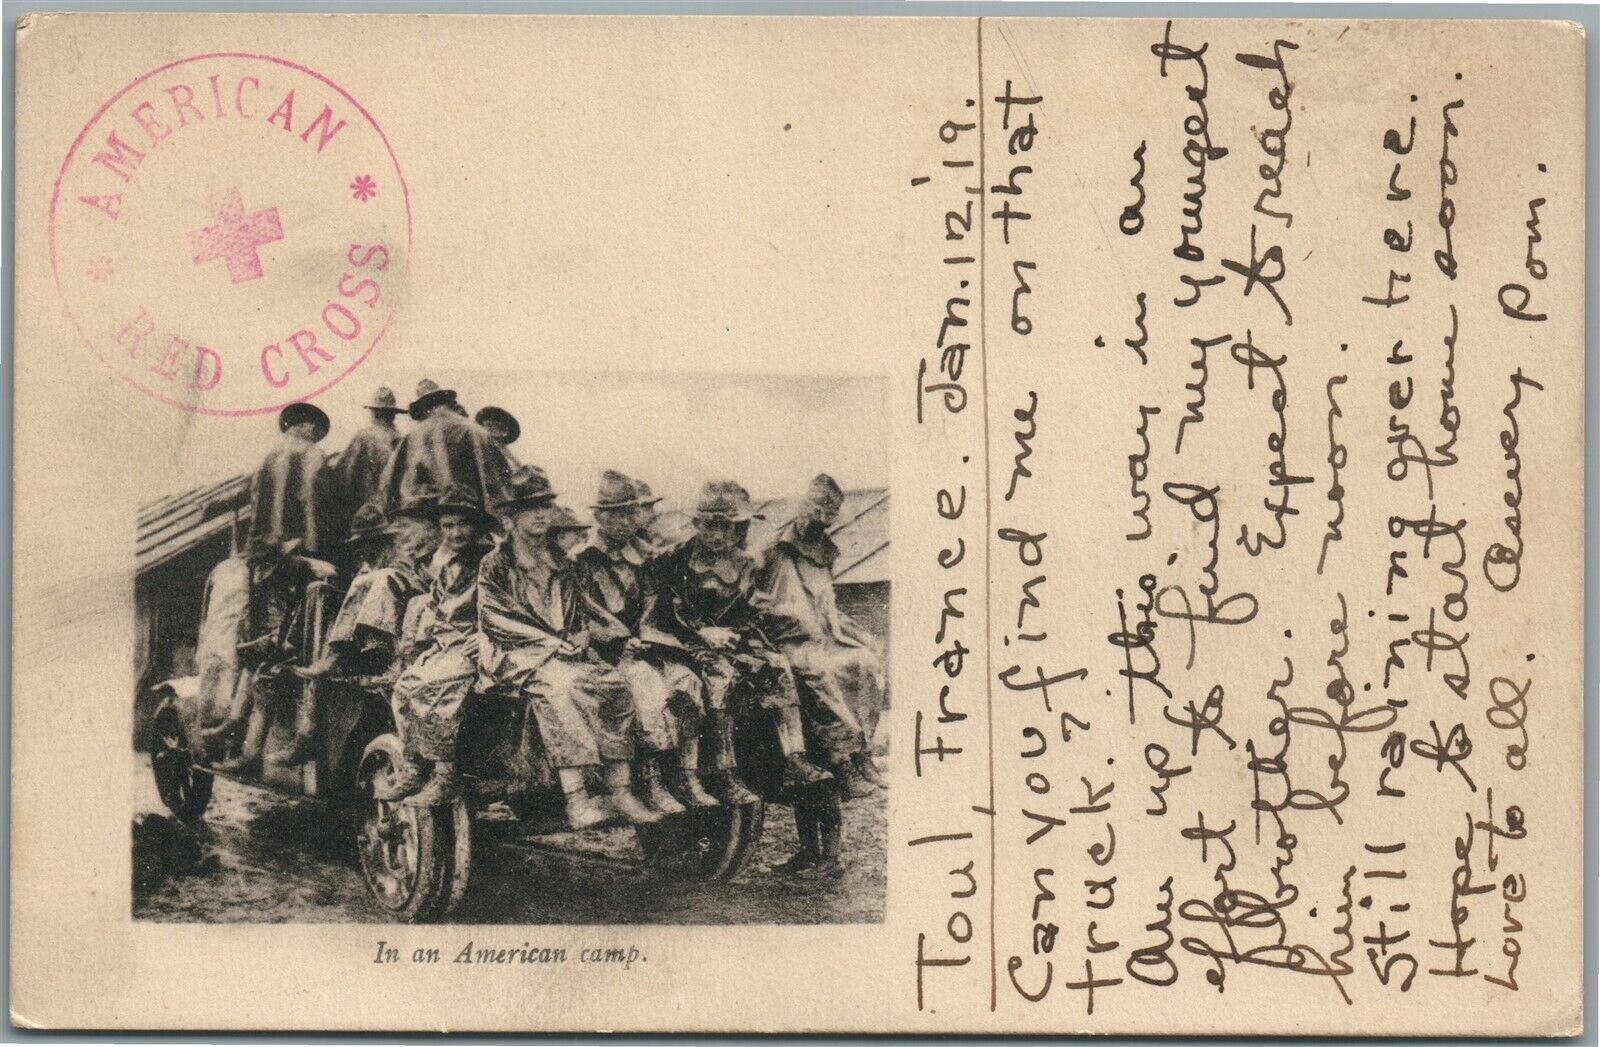 AMERICAN
RED CROSS
In an American camp.
Toul, France. Jan. 12, '19.
Can you find me on that
truck?
Am up this way in an
effort to find my youngest
brother. Expect to reach
him before noon.
Still raining over here.
Hope to start home soon.
Love to all. Pom.